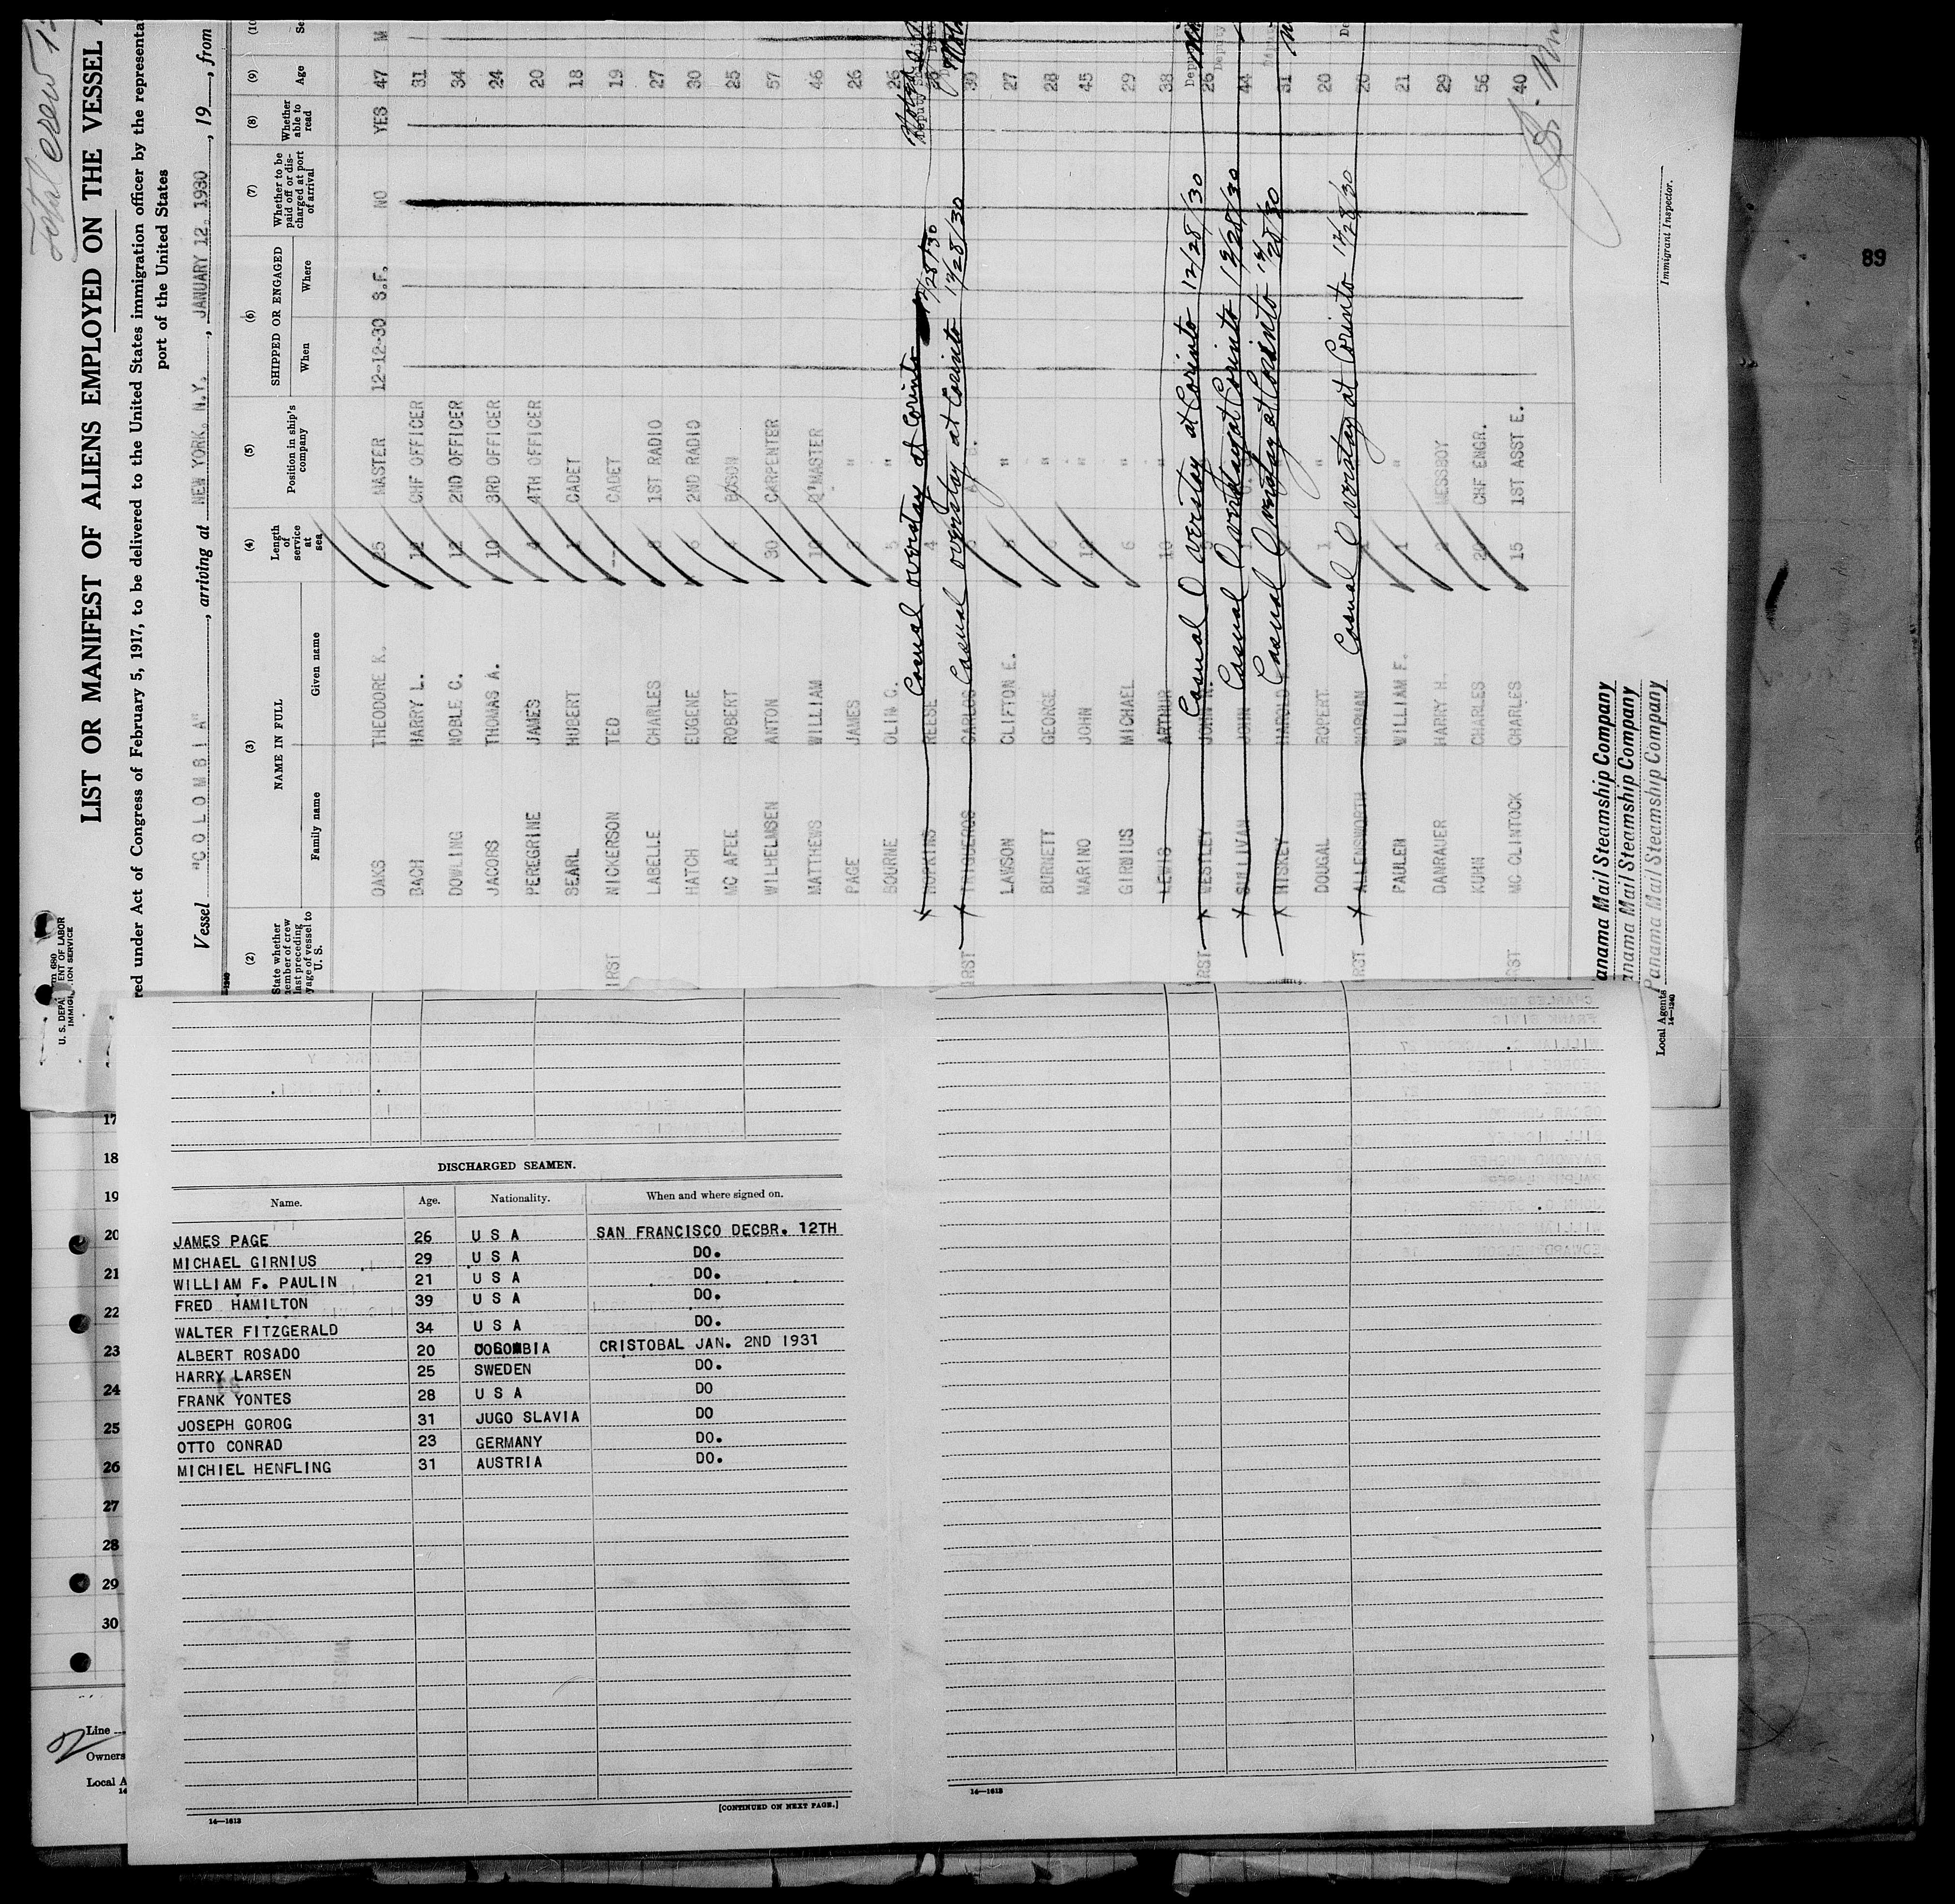 Total crew
LIST OR MANIFEST OF ALIENS EMPLOYED ON THE VESSEL
red under Act of Congress of February 5, 1917, to be delivered to the United States immigration officer by the representa
port of the United States
Vessel "COLOMBIA", arriving at NEW YORK. N.Y., JANUARY 12. 1930, 19, from
U. S. DEPA ENT OF LABOR
IMMIG ION SERVICE
(2) (3) (4) (5) (6) (7) (8) (9)
State whether member of crew last preceding voyage of vessel to U. S.
NAME IN FULL
Family name Given name
Length of service at sea
Position in ship's company
SHIPPED OR ENGAGED
When Where
Whether to be paid off or discharged at port of arrival
Whether able to read
Age
OAKS THEODORE K. 25 MASTER 12-12-30 S.F. NO YES 47 M
BACH HARRY L. 12 CHF OFFICER 31
DOWLING NOBLE C. 12 2ND OFFICER 34
JACOBS THOMAS A. 10 3RD OFFICER 24
PEREGRINE JAMES 4 4TH OFFICER 20
SEARL HUBERT 1 CADET 18
IRST NICKERSON TED -- CADET 19
LABELLE CHARLES 8 1ST RADIO 27
HATCH EUGENE 6 2ND RADIO 30
MC AFEE ROBERT BOSON 25
WILHELMSEN ANTON 30 CARPENTER 57
MATTHEWS WILLIAM 10 Q'MASTER 46
PAGE JAMES 3 " 26
BOURNE OLIN C. 5 " 26
x HOPKINS REESE 4 Casual overstay at Corinto 12/28/30
IRST x TRIGUEROS CARLOS Casual overstay at Corinto 12/28/30 30
LAWSON CLIFTON E. " 27
BURNETT GEORGE 6 " 28
MARINO JOHN 12 " 45
GIRNIUS MICHAEL 6 " 29
LEWIS ARTHUR 10 " 38
IRST x WESTLEY JOHN R. Casual Overstay at Corinto 12/28/30 26
x SULLIVAN JOHN Casual Overstay at Corinto 12/28/30 44
x HISKEY HAROLD Casual Overstay at Corinto 12/28/30 31
DOUGAL ROPERT 1 " 20
IRST x ALLENSWORTH NORMAN Casual Overstay at Corinto 12/28/30 20
PAULEN WILLIAM F. 1 " 21
DANRAUER HARRY H. 2 MESSBOY 29
KUHN CHARLES 20 CHF ENGR. 56
RST MC CLINTOCK CHARLES 15 1ST ASST E. 40
anama Mail Steamship Company
anama Mail Steamship Company
Panama Mail Steamship Company
Local Agents
14—1240
Immigrant Inspector.
89
17
18
19
20
21
22
23
24
25
26
27
28
29
30
Line
Owners
Local A
14
DISCHARGED SEAMEN.
Name. Age. Nationality. When and where signed on.
JAMES PAGE 26 U S A SAN FRANCISCO DECBR. 12TH
MICHAEL GIRNIUS 29 U S A DO.
WILLIAM F. PAULIN 21 U S A DO.
FRED HAMILTON 39 U S A DO.
WALTER FITZGERALD 34 U S A DO.
ALBERT ROSADO 20 COLOMBIA CRISTOBAL JAN. 2ND 1931
HARRY LARSEN 25 SWEDEN DO.
FRANK YONTES 28 U S A DO
JOSEPH GOROG 31 JUGO SLAVIA DO
OTTO CONRAD 23 GERMANY DO.
MICHIEL HENFLING 31 AUSTRIA DO.
[CONTINUED ON NEXT PAGE.]
14—1613
14—1613